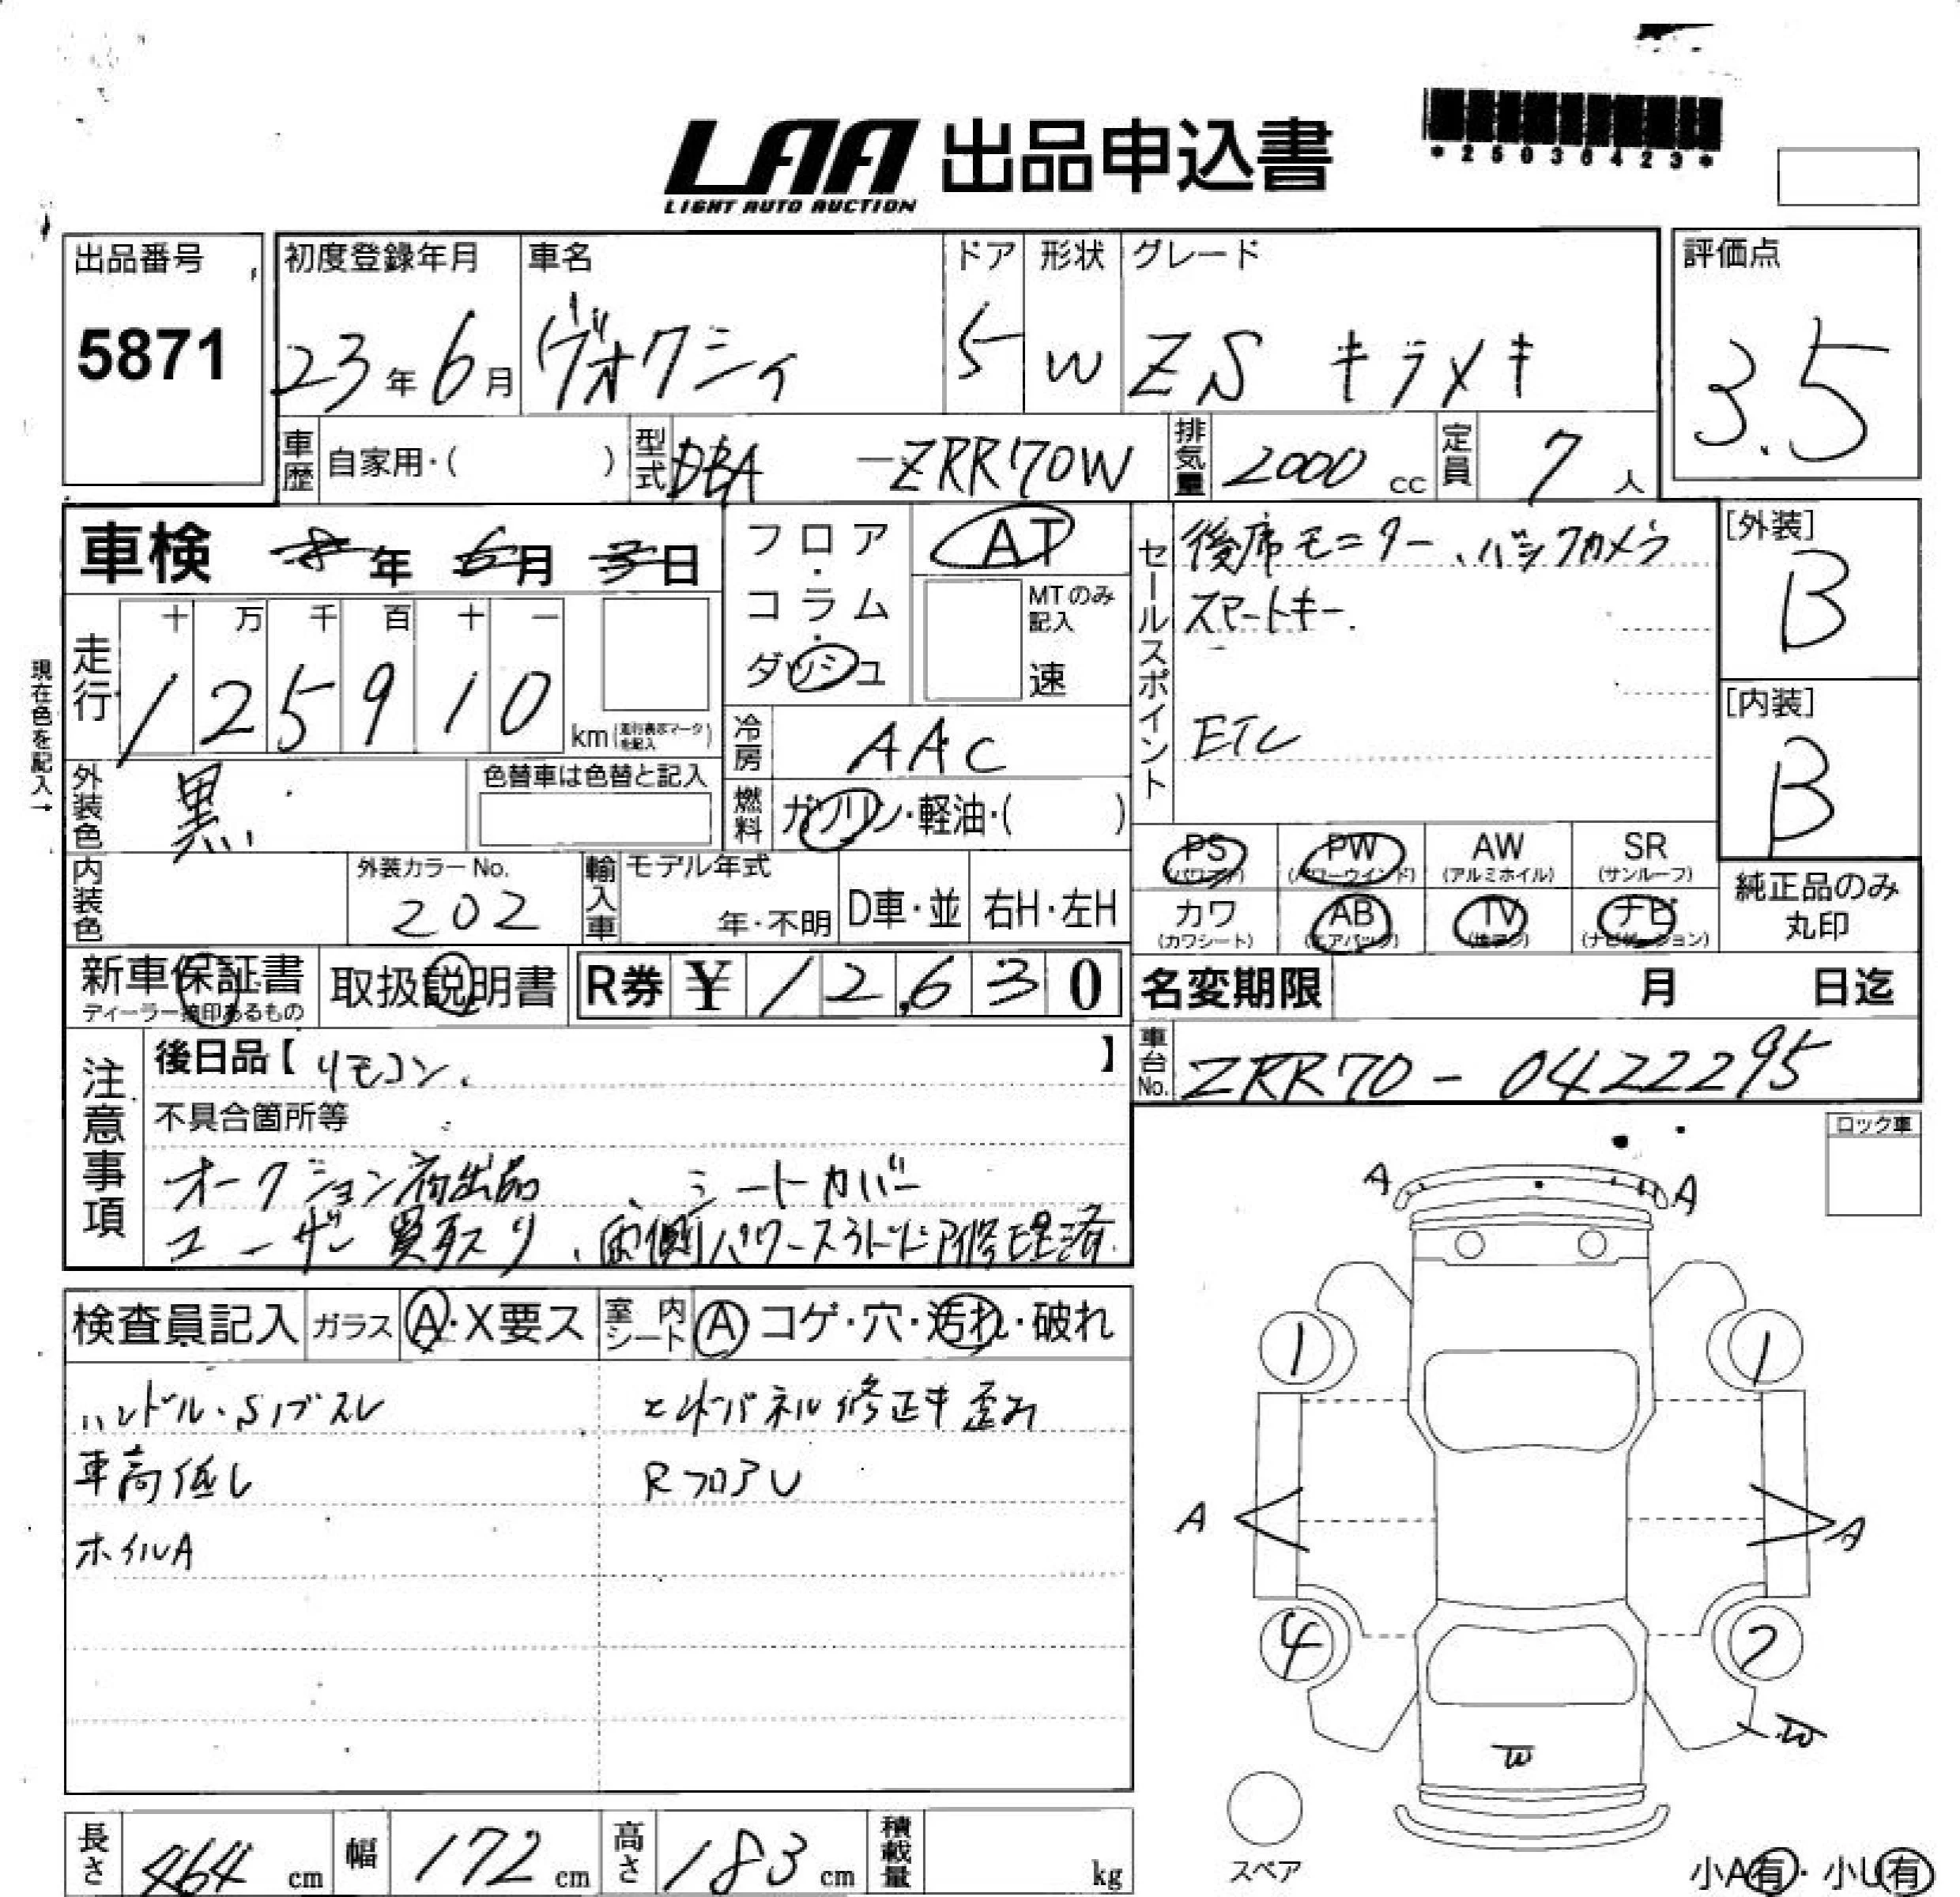 LAA 出品申込書
LIGHT AUTO AUCTION
*25036423*
出品番号
5871
初度登録年月
23年6月
車名
ヴォクシィ
ドア
5
形状
W
グレード
ZS キラメキ
評価点
3.5
車歴
自家用・( )
型式
DBA -ZRR70W
排気量
2000 cc
定員
7 人
車検 8年 6月 3日
フロア・コラム・ダッシュ
AT
MTのみ記入
速
セールスポイント
後席モニター、バックカメラ
スマートキー.
ETC
[外装]
B
[内装]
B
現在色を記入→
走行
十 万 千 百 十 一
1 2 5 9 1 0
km(走行表示マークを記入)
冷房
AAC
外装色
黒
色替車は色替と記入
燃料
ガソリン・軽油・( )
PS
(パワステ)
PW
(パワーウインド)
AW
(アルミホイル)
SR
(サンルーフ)
カワ
(カワシート)
AB
(エアバッグ)
TV
(地デジ)
ナビ
(ナビゲーション)
純正品のみ
丸印
内装色
外装カラーNo.
202
輸入車
モデル年式
年・不明
D車・並
右H・左H
新車保証書
ディーラー捺印あるもの
取扱説明書
R券 ¥ 12,630
名変期限 月 日迄
車台No.
ZRR70-0422295
注意事項
後日品【リモコン、】
不具合箇所等
オークション初出品 、シートカバー
ユーザー買取スリ、両側パワースライドドア修理済.
ロック車
検査員記入
ガラス
A・X要ス
室内シート
A コゲ・穴・汚れ・破れ
ハンドル・Sノブスレ
車高低し
ホイルA
エンドパネル修正キ歪み
RフロアU
A
A
1
1
A
A
4
2
W
W
スペア
小A有・小U有
長さ
464 cm
幅
172 cm
高さ
183 cm
積載量
kg